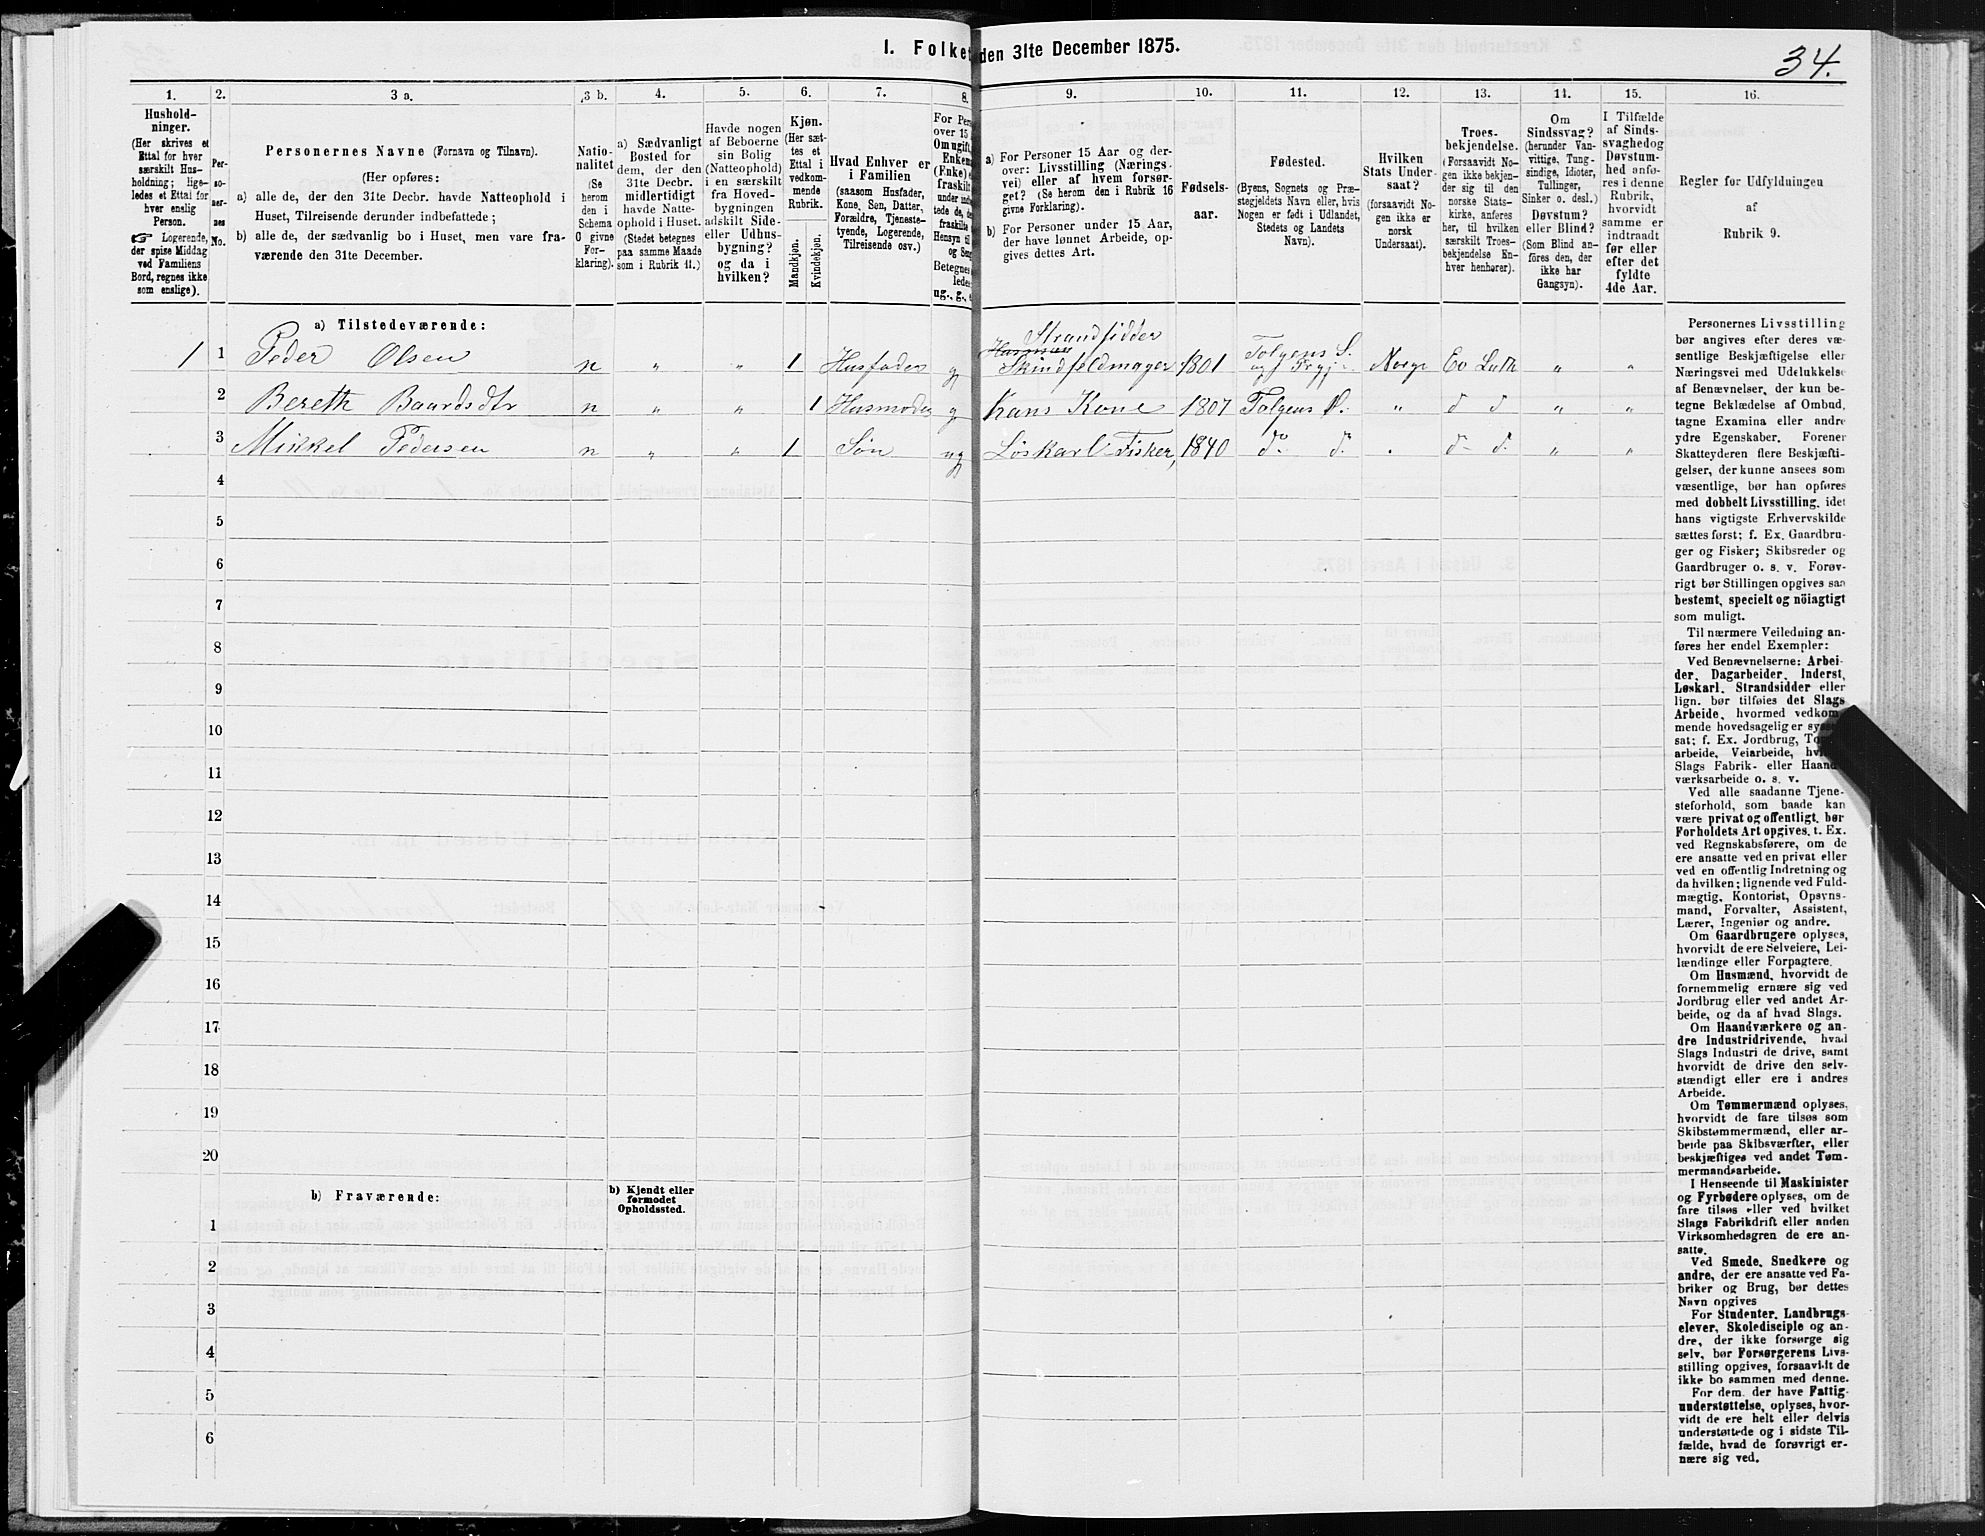 1. Folket
den 31te December 1875.
34.
1.
Hushold-
ninger.
(Her skrives et
Ettal for hver
særskilt Hus-
holdning; lige-
ledes et Ettal for
hver enslig
Person.
☞ Logerende,
der spise Middag
ved Familiens
Bord, regnes ikke
som enslige).
2.
Per-
so-
ner-
nes
No.
3 a.
Personernes Navne (Fornavn og Tilnavn).
(Her opføres:
a) alle de, der den 31te Decbr. havde Natteophold i
Huset, Tilreisende derunder indbefattede;
b) alle de, der sædvanlig bo i Huset, men vare fra-
værende den 31te December.
3 b.
Natio-
nalitet
(Se
herom
den i
Schema
6 givne
For-
klaring).
4.
a) Sædvanligt
Bosted for
dem, der den
31te Decbr.
midlertidigt
havde Natte-
ophold i Huset.
(Stedet betegnes
paa samme Maade
som i Rubrik 11.)
5.
Havde nogen
af Beboerne
sin Bolig
(Natteophold)
i en særskilt
fra Hoved-
bygningen
adskilt Side-
eller Udhus-
bygning?
og da i
hvilken?
6.
Kjøn.
(Her sæt-
tes et
Ettal i
vedkom-
mende
Rubrik.
Mandkjøn.
Kvindekjøn.
7.
Hvad Enhver er
i Familien
(saasom Husfader,
Kone, Søn, Datter,
Forældre, Tjeneste-
tyende, Logerende,
Tilreisende osv.)
8.
For Pers
over 15
Om ugift,
Enkem
(Enke) e
fraskilt
under ind
tede de,
fraskilte
Hensyn til
og Sen
Betegnes
ledes
ug., g., e
9.
a) For Personer 15 Aar og der-
over: Livsstilling (Nærings-
vei) eller af hvem forsør-
get? (Se herom den i Rubrik 16
givne Forklaring).
b) For Personer under 15 Aar,
der have lønnet Arbeide, op-
gives dettes Art.
10.
Fødsels-
aar.
11.
Fødested.
(Byens, Sognets og Præ-
stegjeldets Navn eller, hvis
Nogen er født i Udlandet,
Stedets og Landets
Navn).
12.
Hvilken
Stats Under-
saat?
(forsaavidt No-
gen ikke er
norsk
Undersaat).
13.
Troes-
bekjendelse.
(Forsaavidt No-
gen ikke bekjen-
der sig til den
norske Stats-
kirke, anføres
her, til hvilken
særskilt Troes-
bekjendelse En-
hver henhører).
14.
Om
Sindssvag?
(herunder Van-
vittige, Tung-
sindige, Idioter,
Tullinger,
Sinker o. desl.)
Døvstum?
eller Blind?
(Som Blind an-
føres den, der
ikke har
Gangsyn).
15.
I Tilfælde
af Sinds-
svaghed og
Døvstum-
hed anfø-
res i denne
Rubrik,
hvorvidt
samme er
indtraadt
før eller
efter det
fyldte
4de Aar.
16.
Regler for Udfyldningen
af
Rubrik 9.
a) Tilstedeværende:
1 1 Peder Olsen n „ „ 1 Husfader g Husmand Strandsidder Skindfeldmager 1801 Tolgens S. Norge Ev Luth „ „
2 Bereth Baardsdtr n „ „ 1 Husmoder g Hans Kone 1807 Tolgens P. „ d d „ „
3 Mikkel Pedersen n „ „ 1 Søn ug Løskarl Fisker, 1840 do d. „ d d. „ „
4
5
6
7
8
9
10
11
12
13
14
15
16
17
18
19
20
b) Fraværende:
b) Kjendt eller
formodet
Opholdssted.
1
2
3
4
5
6
Personernes Livsstilling
bør angives efter deres væ-
sentlige Beskjæftigelse eller
Næringsvei med Udelukkelse
af Benævnelser, der kun be-
tegne Beklædelse af Ombud,
tagne Examina eller andre
ydre Egenskaber. Forener
Skatteyderen flere Beskjæfti-
gelser, der kunne ansees som
væsentlige, bør han opføres
med dobbelt Livsstilling, idet
hans vigtigste Erhvervskilde
sættes først; f. Ex. Gaardbru-
ger og Fisker; Skibsreder og
Gaardbruger o. s. v. Forøv-
rigt bør Stillingen opgives saa
bestemt, specielt og nöiagtigt
som muligt.
Til nærmere Veiledning an-
føres her endel Exempler:
Ved Benævnelserne: Arbei-
der, Dagarbeider, Inderst,
Løskarl, Strandsidder eller
lign. bør tilføies det Slags
Arbeide, hvormed vedkom-
mende hovedsagelig er syssel-
sat; f. Ex. Jordbrug, To
arbeide, Veiarbeide, hvi
Slags Fabrik- eller Haand-
værksarbeide o. s. v.
Ved alle saadanne Tjene-
steforhold, som baade kan
være privat og offentligt, bør
Forholdets Art opgives, t. Ex.
ved Regnskabsførere, om de
ere ansatte ved en privat eller
ved en offentlig Indretning og
da hvilken; lignende ved Fuld-
mægtig, Kontorist, Opsyns-
mand, Forvalter, Assistent,
Lærer, Ingeniør og andre.
Om Gaardbrugere oplyses,
hvorvidt de ere Selveiere, Lei-
lændinge eller Forpagtere.
Om Husmænd, hvorvidt de
fornemmelig ernære sig ved
Jordbrug eller ved andet Ar-
beide, og da af hvad Slags.
Om Haandværkere og an-
dre Industridrivende, hvad
Slags Industri de drive, samt
hvorvidt de drive den selv-
stændigt eller ere i andres
Arbeide.
Om Tømmermænd oplyses,
hvorvidt de fare tilsøs som
Skibstømmermænd, eller ar-
beide paa Skibsværfter, eller
beskjæftiges ved andet Tøm-
mermandsarbeide.
I Henseende til Maskinister
og Fyrbødere oplyses, om de
fare tilsøs eller ved hvilket
Slags Fabrikdrift eller anden
Virksomhedsgren de ere an-
satte.
Ved Smede, Snedkere og
andre, der ere ansatte ved Fa-
briker og Brug, bør dettes
Navn opgives
For Studenter, Landbrugs-
elever, Skoledisciple og an-
dre, der ikke forsørge sig
selv, bør Forsørgerens Livs-
stilling opgives, forsaavidt de
ikke bo sammen med denne.
For dem, der have Fattig-
understøttelse, oplyses, hvor-
vidt de ere helt eller delvis
understøttede og i sidste Til-
fælde, hvad de forøvrigt er-
nære sig ved.